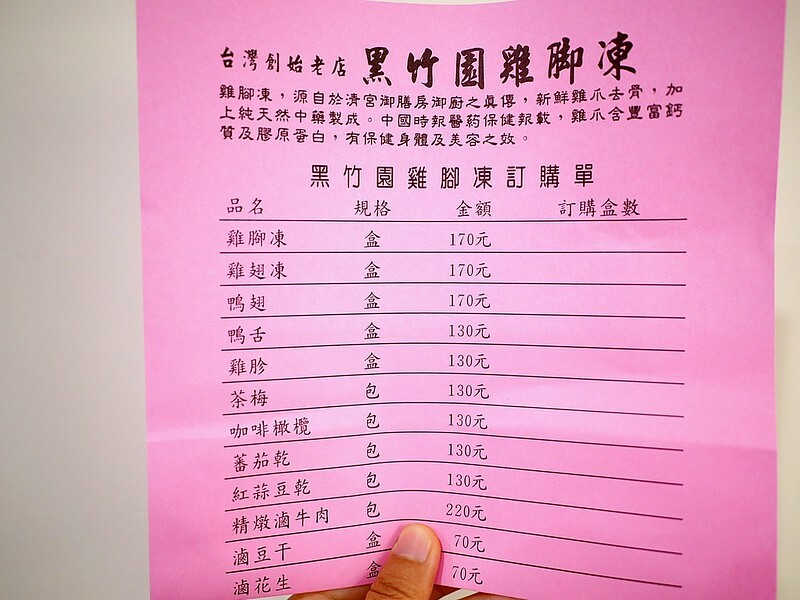 台灣創始老店 黑竹園雞腳凍
雞腳凍，源自於清宮御膳房御廚之真傳，新鮮雞爪去骨，加
上純天然中藥製成。中國時報醫葯保健報載，雞爪含豐富鈣
質及膠原蛋白，有保健身體及美容之效。
黑竹園雞腳凍訂購單
品名 規格 金額 訂購盒數
雞腳凍 盒 170元
雞翅凍 盒 170元
鴨翅 盒 170元
鴨舌 盒 130元
雞胗 盒 130元
茶梅 包 130元
咖啡橄欖 包 130元
蕃茄乾 包 130元
紅蒜豆乾 包 130元
精燉滷牛肉 包 220元
滷豆干 盒 70元
滷花生 盒 70元